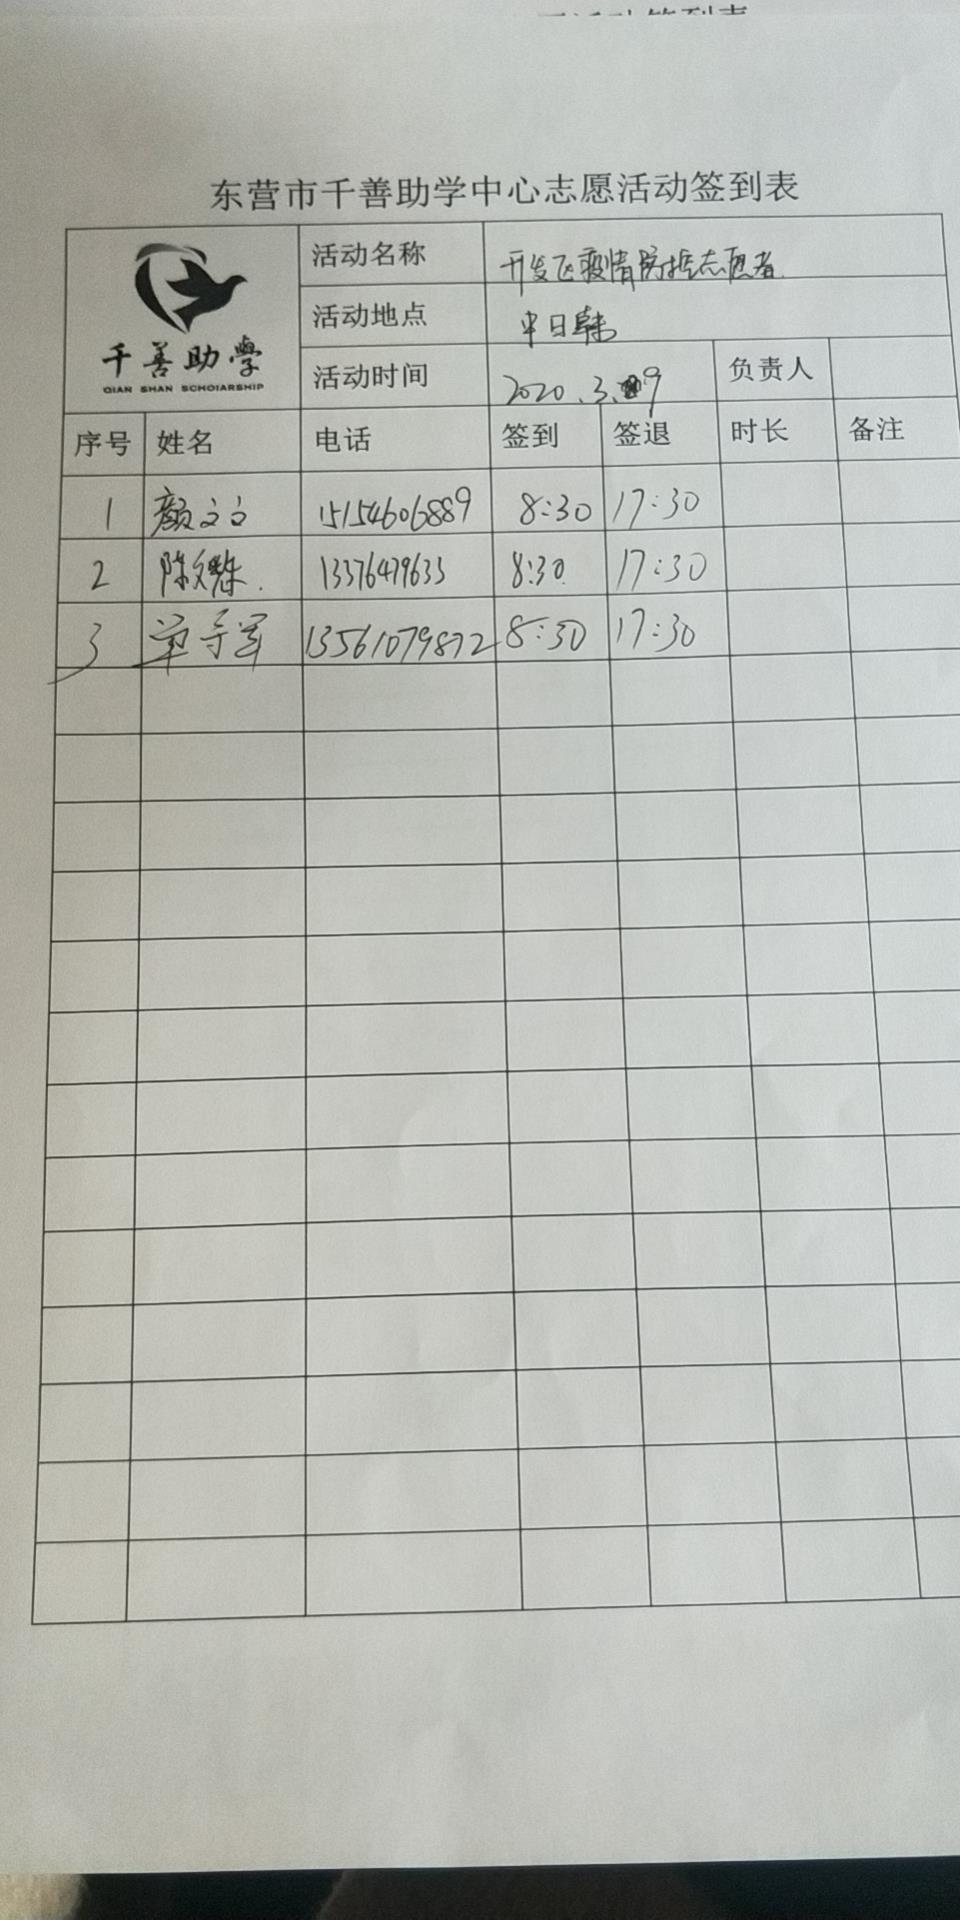 东营市千善助学中心志愿活动签到表
千善助學
QIAN SHAN SCHOIARSHIP
活动名称 开发区疫情防控志愿者
活动地点 中日韩
活动时间 2020.3.9 负责人
序号 姓名 电话 签到 签退 时长 备注
1 颜文文 15154606889 8:30 17:30
2 陈 13376479633 8:30 17:30
3 单守军 13561079872 8:30 17:30